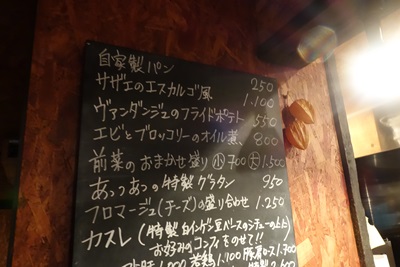 自家製パン 250
サザエのエスカルゴ風 1.100
ヴァンダンジュのフライドポテト 550
エビとブロッコリーのオイル煮、 800
前菜のおまかせ盛り 小700 大1,500
あっつあつの特製グラタン 950
フロマージュ(チーズ)の盛り合わせ 1.250
カスレ(特製白インゲン豆ベースのシチューの上に
お好みのコンフィをのせて!!
1.000 若鶏1.100 豚肩ロース1.700
特製 2.600